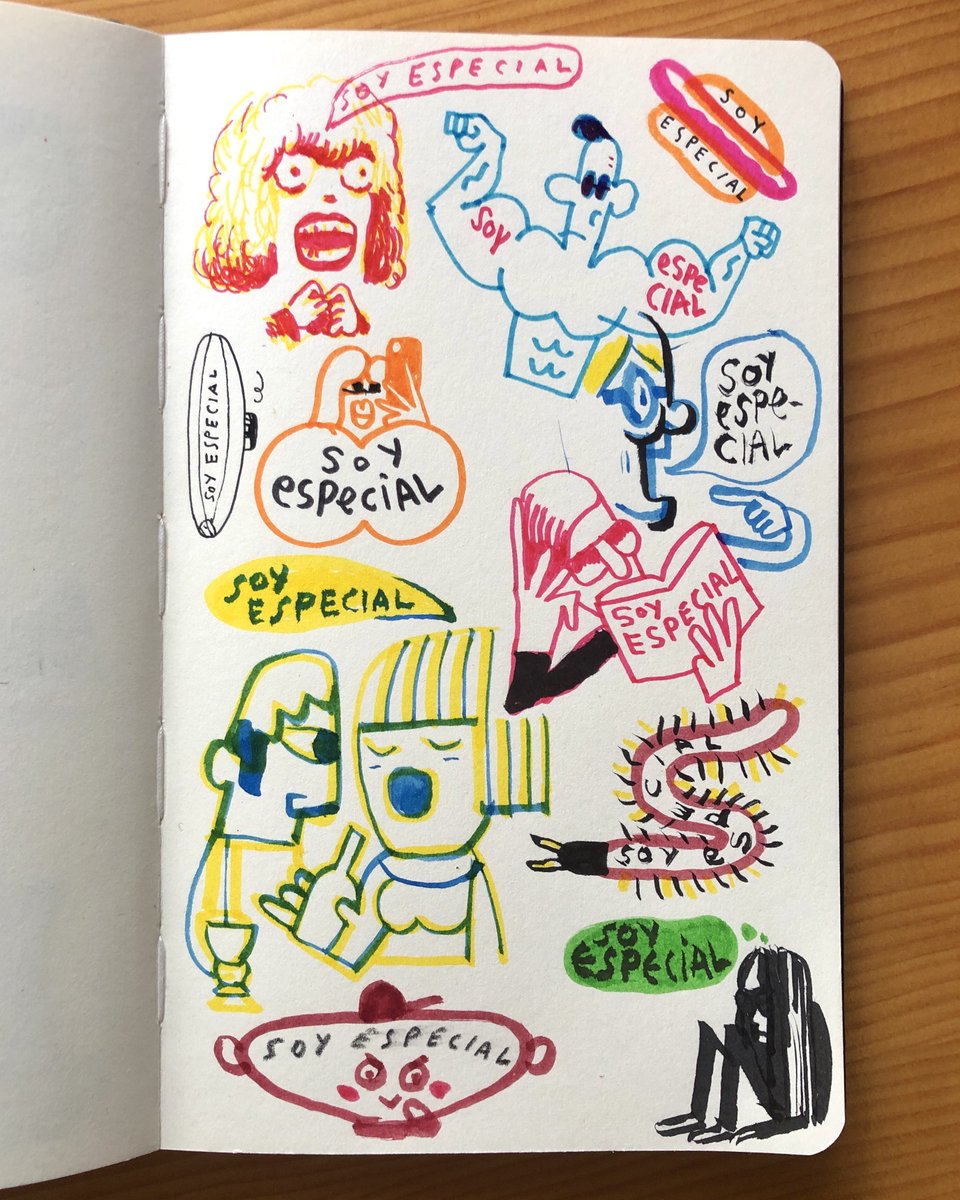 SOY ESPECIAL
SOY
ESPECIAL
SOY
espe
CIAL
SOY ESPECIAL
SOY
especiAL
SOY
espe-
CIAL
SOY
ESPECIAL
SOY
ESPECIAL
SOY especiAL
SOY
ESPECIAL
SOY ESPECIAL